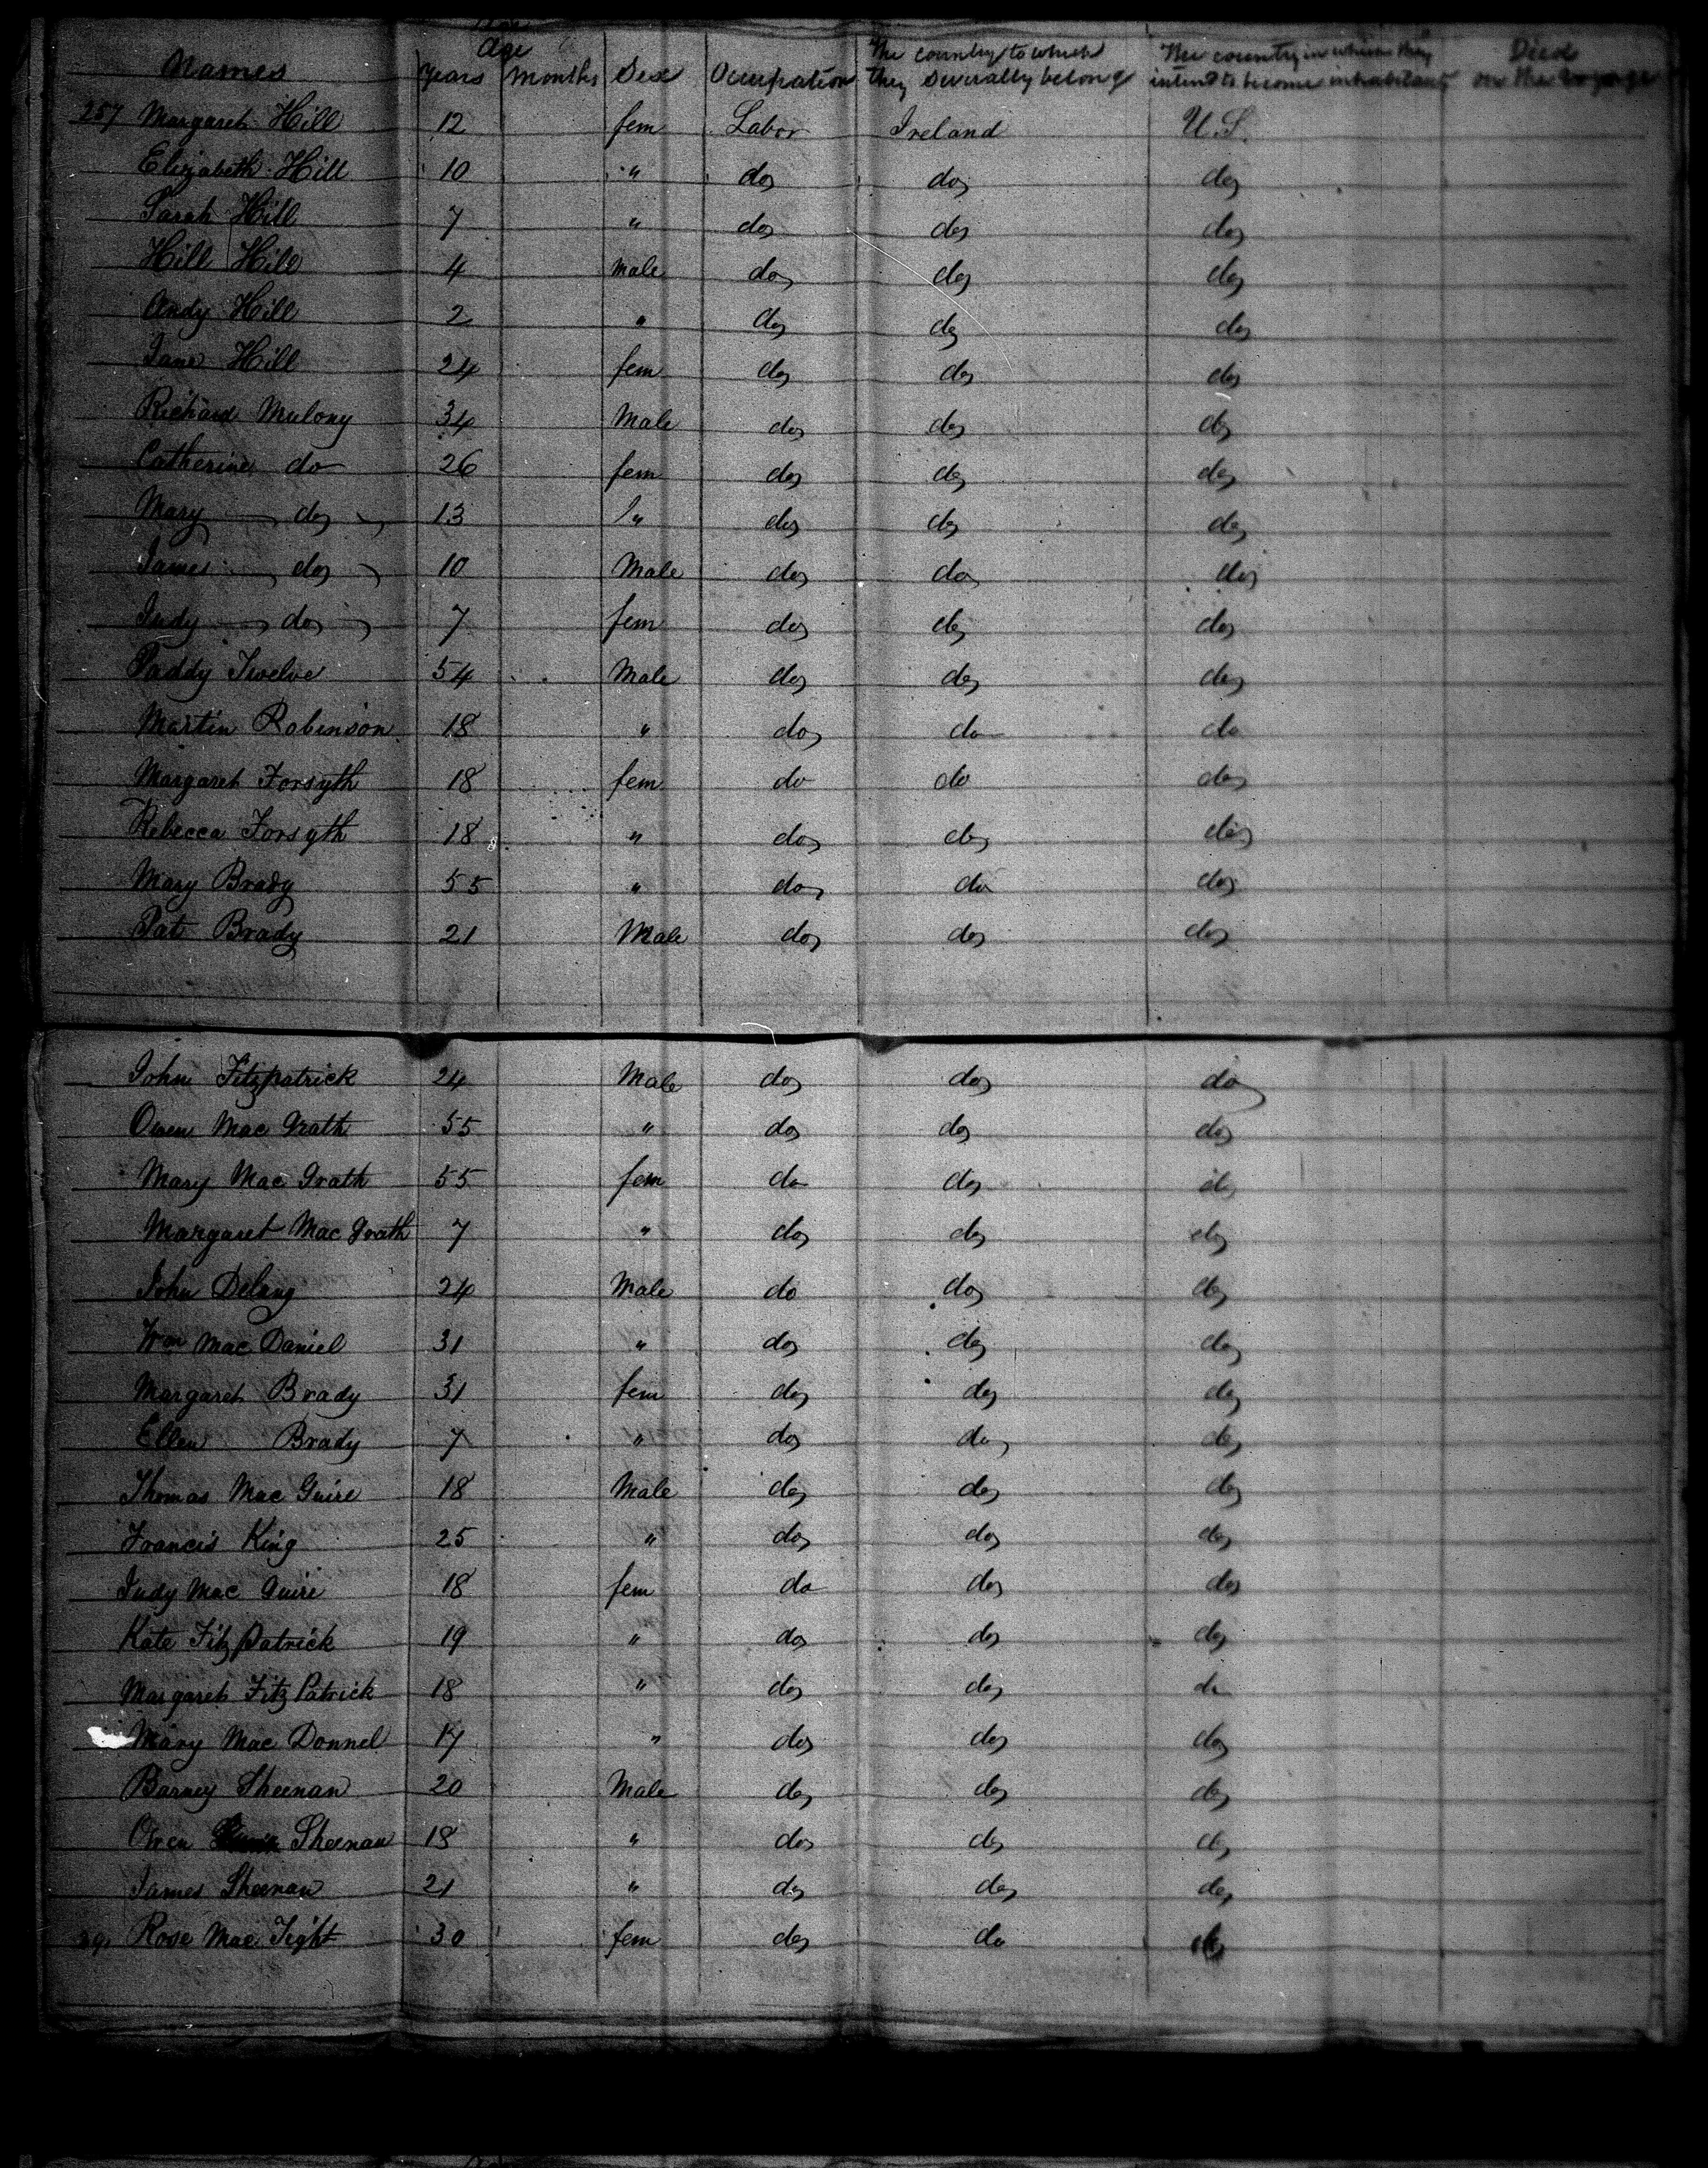 Age
Names years months Sex Occupation The country to which they severally belong The country in which they intend to become inhabitants Died on the voyage
257 Margaret Hill 12 fem Labor Ireland U.S.
Elizabeth Hill 10 " do do do
Sarah Hill 7 " do do do
Hill Hill 4 Male do do do
Andy Hill 2 " do do do
Jane Hill 24 fem do do do
Richard Mulony 34 Male do do do
Catherine do 26 fem do do do
Mary do 13 " do do do
James do 10 Male do do do
Judy do 7 fem do do do
Paddy Twelve 54 Male do do do
Martin Robinson 18 " do do do
Margaret Forsyth 18 fem do do do
Rebecca Forsyth 18 " do do do
Mary Brady 55 " do do do
Pat Brady 21 Male do do do
John Fitzpatrick 24 Male do do do
Owen Mac Grath 55 " do do do
Mary Mac Grath 55 fem do do do
Margaret Mac Grath 7 " do do do
John Delany 24 Male do do do
Wm Mac Daniel 31 " do do do
Margaret Brady 31 fem do do do
Ellen Brady 7 " do do do
Thomas Mac Guire 18 Male do do do
Francis King 25 " do do do
Judy Mac Guire 18 fem do do do
Kate Fitz Patrick 19 " do do do
Margaret Fitz Patrick 18 " do do do
Mary Mac Donnel 17 " do do do
Barney Sheenan 20 Male do do do
Owen Sheenan 18 " do do do
James Sheenan 21 " do do do
Rose Mac Tight 30 fem do do do